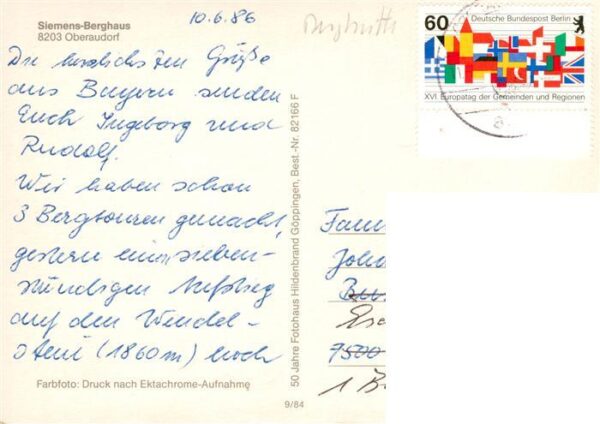 Siemens-Berghaus
8203 Oberaudorf
10.6.86
Berghütte
Die herzlichsten Grüße
aus Bayern senden
Euch Ingeborg und
Rudolf.
Wir haben schon
3 Bergtouren gemacht,
gestern einen sieben-
stündigen Aufstieg
auf den Wendel-
stein (1860m) hoch
Farbfoto: Druck nach Ektachrome-Aufnahme
9/84
50 Jahre Fotohaus Hildenbrand Göppingen, Best.-Nr. 82166 F
60
Deutsche Bundespost Berlin
XVI. Europatag der Gemeinden und Regionen
Fam
Joh
7500
1 B